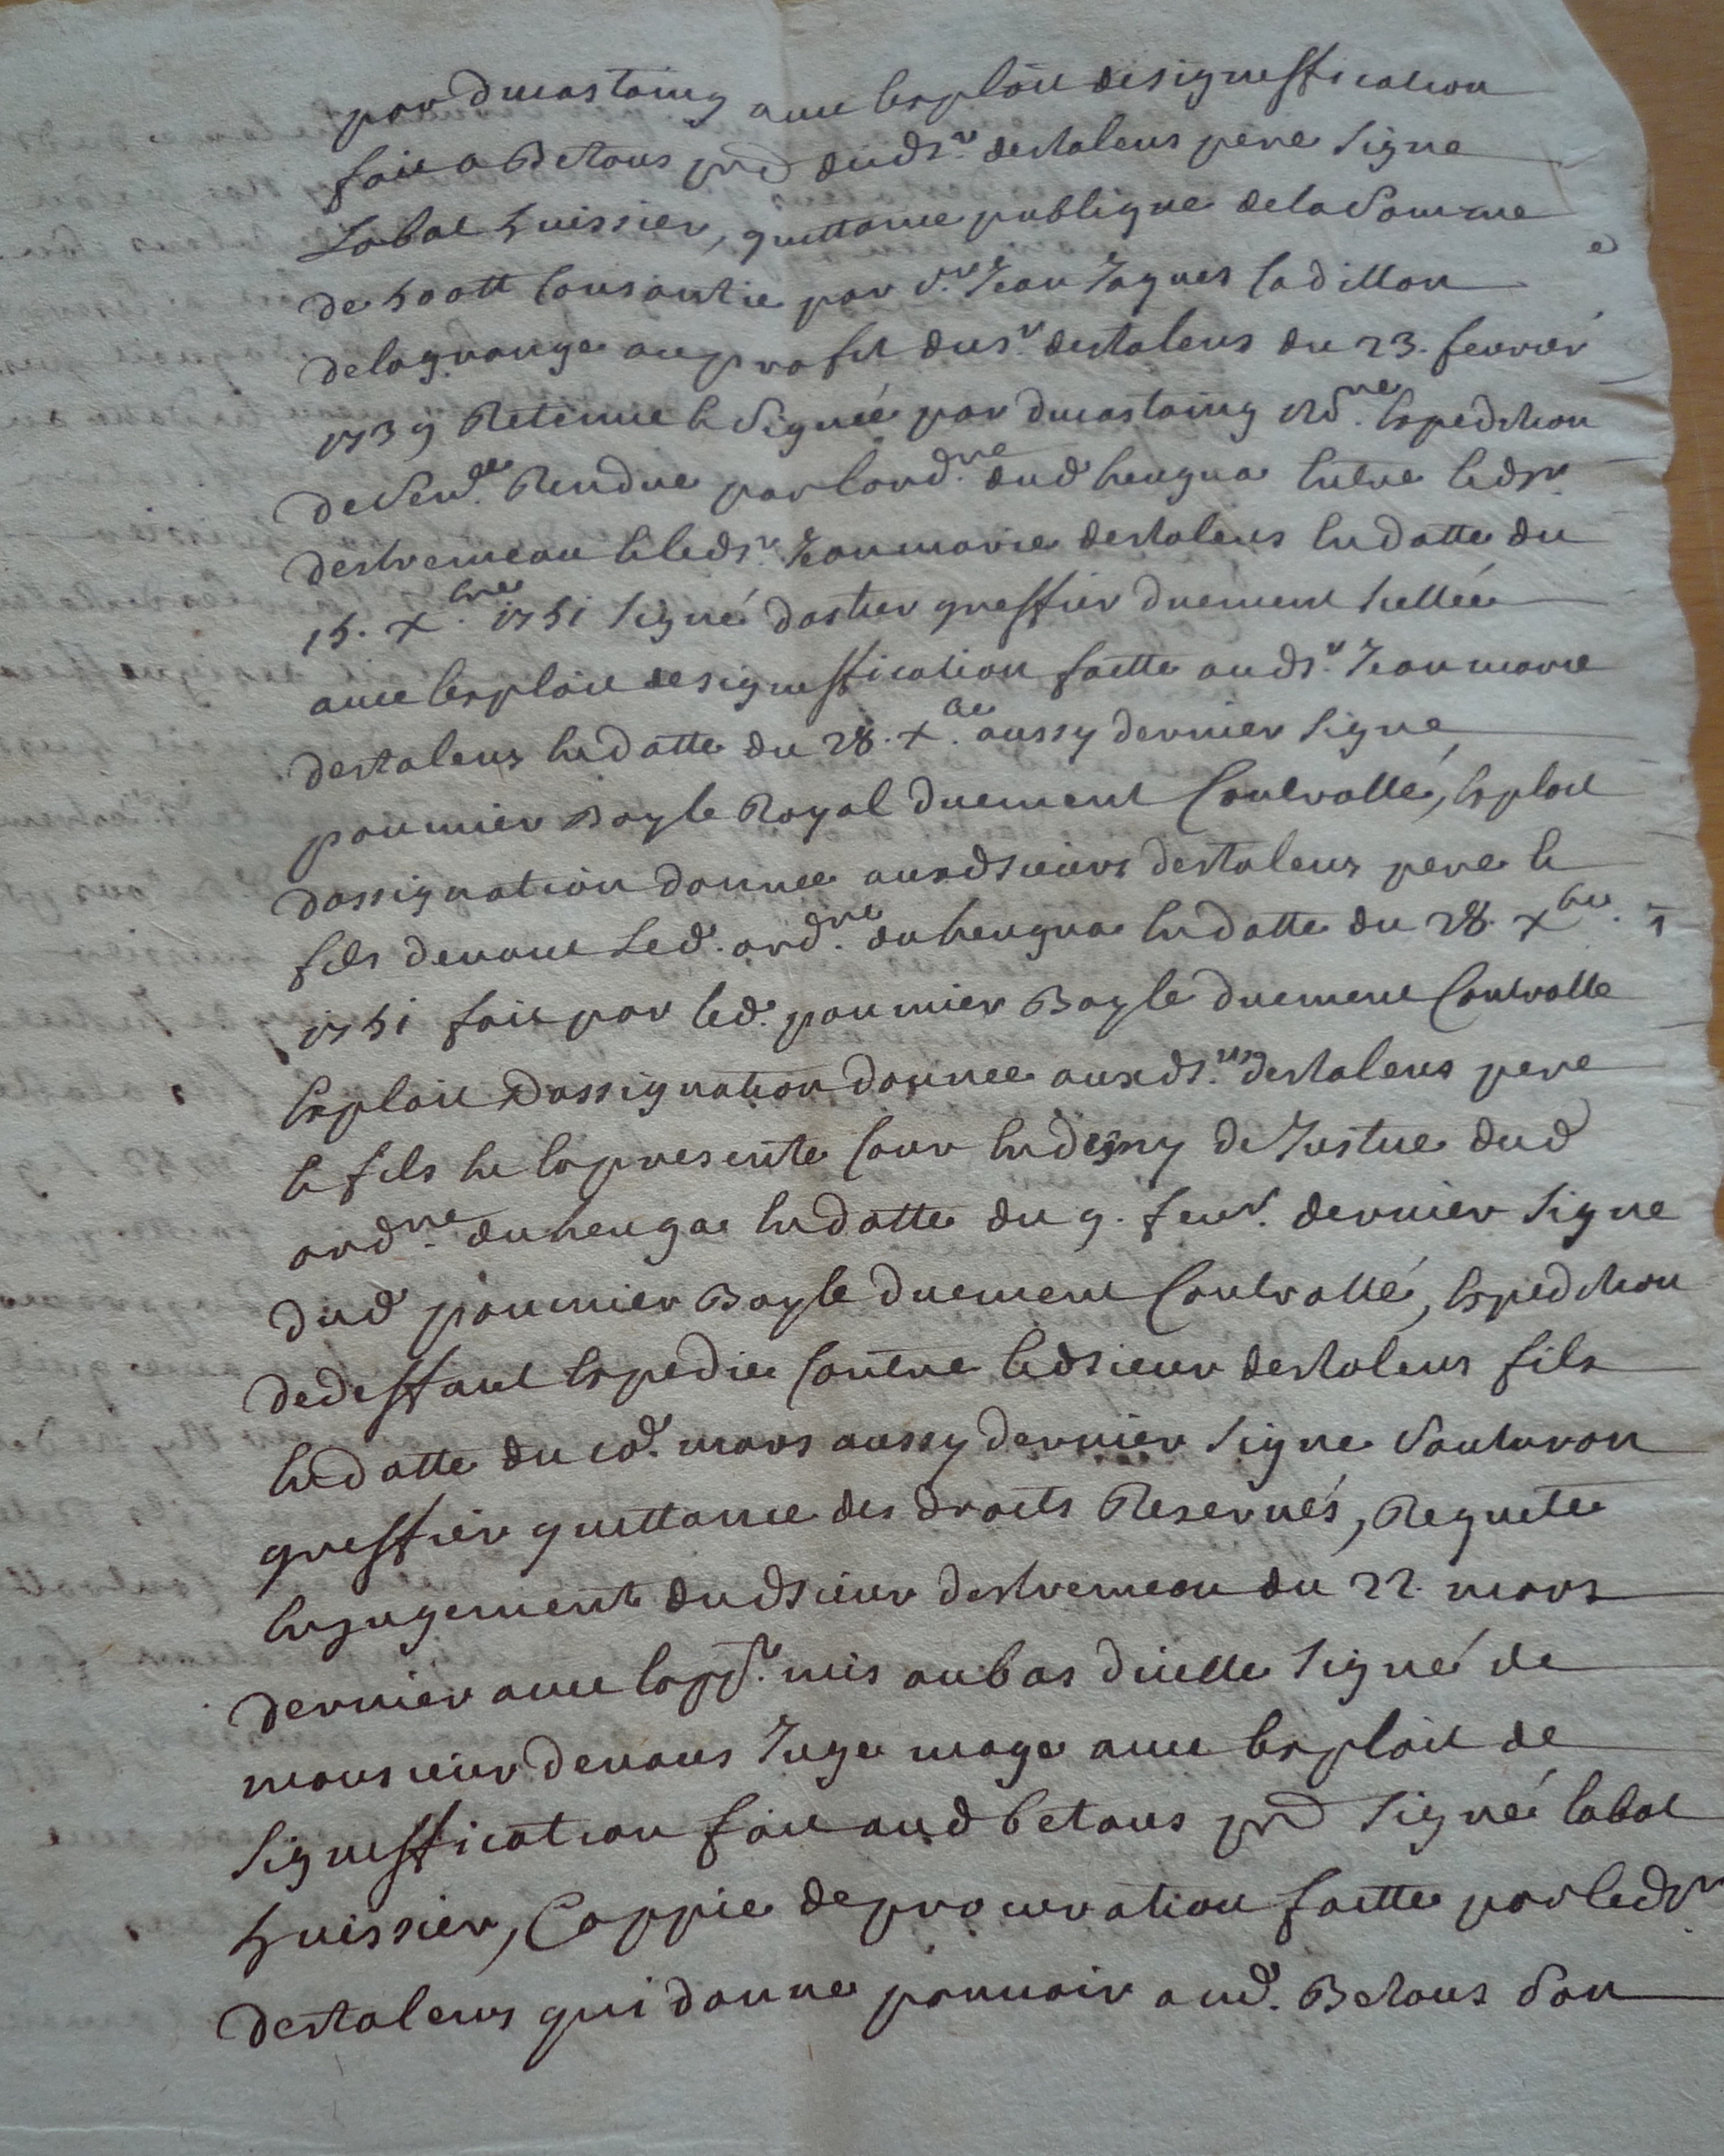 par ducastaing avec lexploit de signeffication
fait a Betous pr͞ dud sr. destalens pere signe
Labat huissier, quittance publique de la somme
de 500tt consantie par sr. Jean Jaques Cadillon
de lagrange au profit du sr. destalens du 23. fevrier
1739 Retenue & signée par ducastaing nore. Expedition
de Sence. Rendue par lordre. dud heugua entre led sr.
destremeau & led sr. Jean marie destalens en datte du
15. Xbre. 1751 signé dastier greffier duement scellée
avec lexploit de signeffication faitte aud sr. Jean marie
destalens en datte du 28. Xbre. aussy dernier signe
poumier Bayle Royal duement Controllé, Exploit
dassignation donnee auxd sieurs destalens pere &
fils devant led. ordre. du heugua en datte du 28. Xbre.
1751 fait par led. poumier Bayle duement Controlle
Exploit Dassignation donnee auxd srs. destalens pere
& fils en la presente Cour en deny de Justice dud
ordre. du heuga en datte du 9. fevr. dernier signe
dud poumier Bayle duement Controllé, Expedition
de deffaut Expedie Contre led sieur destalens fils
en datte du mars aussy dernier signe
greffier quittance des droits Reservés, Requete
en jugement dud sieur destremeau du 22. mars
dernier avec lapp.t mis au bas dicelle signé de
monsieur devaus Juge mage avec Exploit de
signeffication fait aud betous pr͞ signé labat
huissier, Coppie de procuration faitte par led sr
destalens qui donne pouvoir aud. Betous son